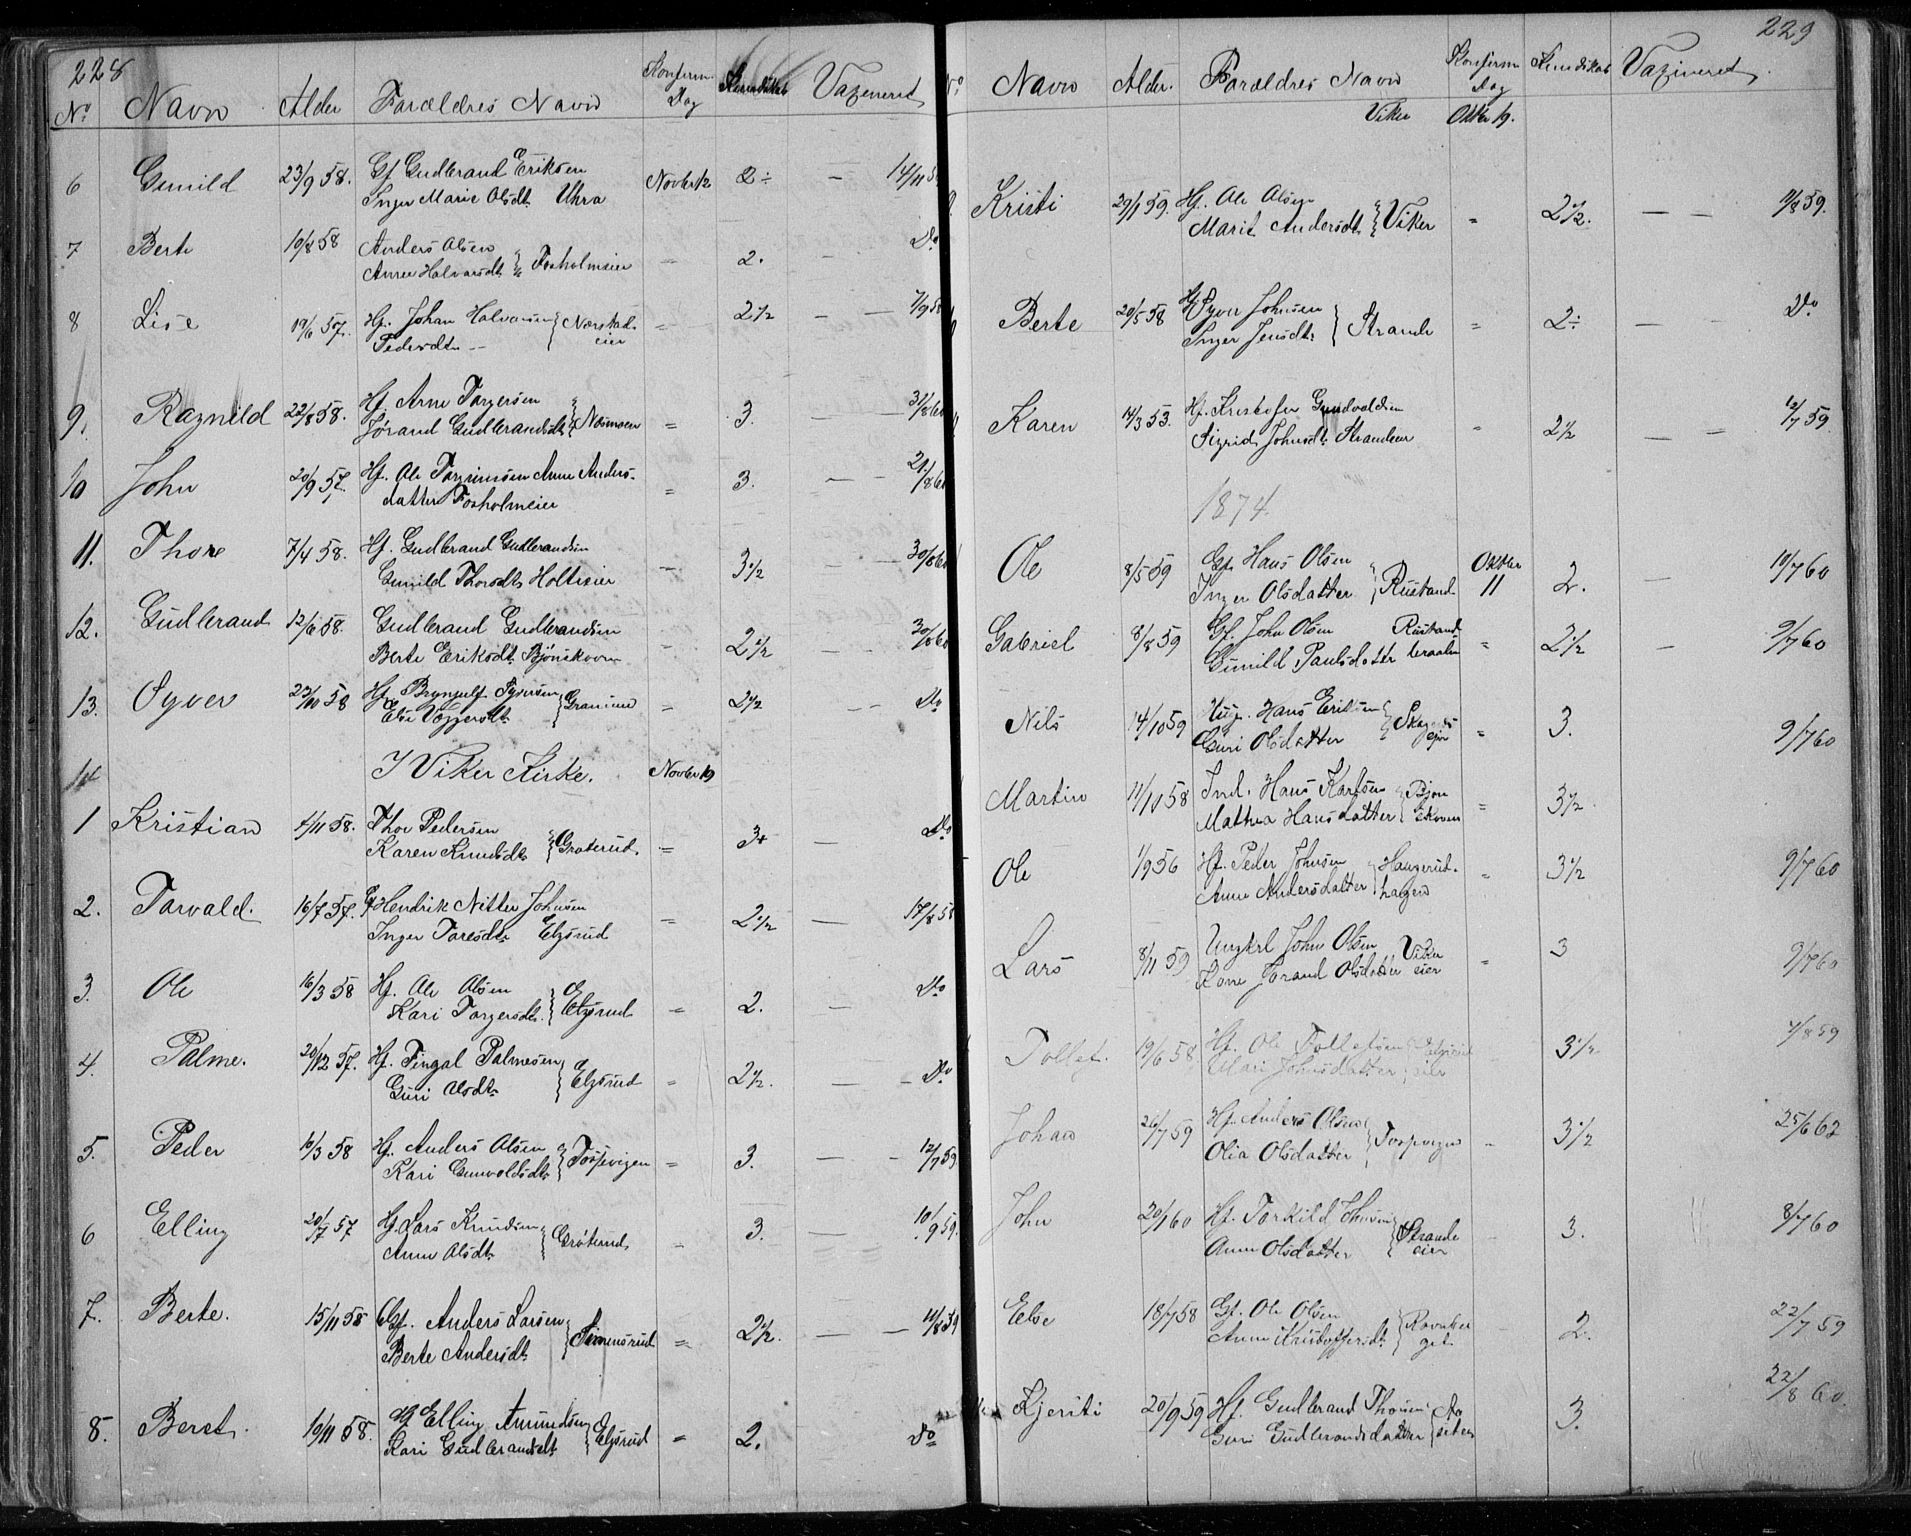 228
No Navn Alder Forældres Navn Konfirm. Dag Kundskab Vaxineret
6 Gunild 23/9 58. Gf Gudbrand Eriksen Novbr 12 2÷ — 14/11 5
Inger Marie Olsdt. Uhra
7 Berte 10/8 58 Anders Olsen
Anne Halvorsdt. Fosholmeier " 2. — Do
8 Lise 19/6 57. Hf. Johan Halvorsen Nærstad
Pedersdt. — eier " 2 1/2 — — 7/9 58
9. Ragnild 22/8 58. Hf. Arne Torgersen
Jørand Gudbrandsdt. Næsmoen " 3. — 31/8 60
10 John 20/9 57. Hf. Ole Torgrimsen Anne Anders-
datter Fosholmeier " 3. — 21/8 60
11. Thore 7/4 58. Hf. Gudbrand Gudbrandsen
Gunild Thorsdt. Holteeier " 3 1/2 — 30/8 60
12. Gudbrand 12/6 58. Gudbrand Gudbrandsen
Berte Eriksdt. Bjørnskoven " 2 1/2 — 30/8 60
13. Syver 23/10 58 Hf. Bryngulf Syversen
Else Viggersdt. " 2 1/2 — — Do
14 I Viker Kirke. Novbr 19
1 Kristian 4/11 58. Thor Pedersen
Karen Knudsdt. Grøterud. " 3+ — Do
2. Torvald. 16/7 57. Gf Hendrik Nitter Johnsen
Inger Toresdt. Elgsrud " 2 1/2 — 17/8 58
3. Ole 16/3 58 Hf. Ole Olsen
Kari Torgersdt. Elgsrud " 2. — Do
4. Palme. 20/12 57. Hf. Fingal Palmesen
Guri Olsdt. Elgsrud " 2 1/2. — — Do
5. Peder 10/3 58 Hf. Anders Olsen
Kari Gunvoldsdt. Tospvigen " 3. — — 12/7 59
6 Elling 20/7 57 Hf. Lars Knudsen
Anne Olsdt. Grøterud " 3. — 10/9 59.
7. Berte. 15/11 58 Gf. Anders Larsen
Berte Andersdt. Simensrud " 2 1/2. — — 11/8 59
8. Beret. 10/11 58. Hf Elling Amundsen
Kari Gudbrandsdt. Elgsrud " 2. Do
229
No Navn Alder. Forældres Navn Konfirm Dag Kundskab Vaxineret.
Viker Oktbr 19.
Kristi 29/1 59. Hf. Ole Olsen
Marit Andersdt. Viker " 2 1/2. — — 11/8 59.
Berte 20/5 58 Hf Syver Johnsen
Inger Jensdt. Strande " 2÷ — — Do
Karen 14/3 53. Hf. Kristofer Gundvoldsen
Sigrid Johnsdt. Strandeeier " 2 1/2 — — 12/7 59
1874.
Ole 8/5 59 Gf. Hans Olsen Oktbr
Inger Olsdatter Rustand 11 2. — 10/7 60
Gabriel 8/8 59 Gf. John Olsen Rustand-
Gunild Paulsdatter braaten " 2 1/2 — 9/7 60
Nils 14/10 59 Hans Eriksen
Guri Olsdatter " 3. 9/7 60
Martin 11/11 58 Ind. Hans Karlsen Bjørn
Mathea Hansdatter skoven " 3 1/2
Ole 1/9 56 Hf. Peder Johnsen Haugerud-
Anne Andersdatter hagen " 3 1/2 9/7 60
Lars 8/11 59 Ungkrl John Olsen Viker
Kone Jørand Olsdatter eier " 3 9/7 60
Tollef. 19/6 58 Hf. Ole Tollefsen Elgsrud
Mari Johnsdatter eier 3 1/2 4/8 59
Johan 26/7 59 Hf. Anders Olsen
Olia Olsdatter Tospvigen " 3 1/2 25/6 62
John 20/1 60 Hf. Torkild Johnsen Strande
Anne Olsdatter eier 3. 8/7 60
Else 18/7 58 Gf. Ole Olsen
Anne Kristoffersdt. 2. 22/7 59
Kjersti 20/9 59 Hf. Gudbrand Thorsen
Guri Gudbrandsdatter 3. 22/8 60.